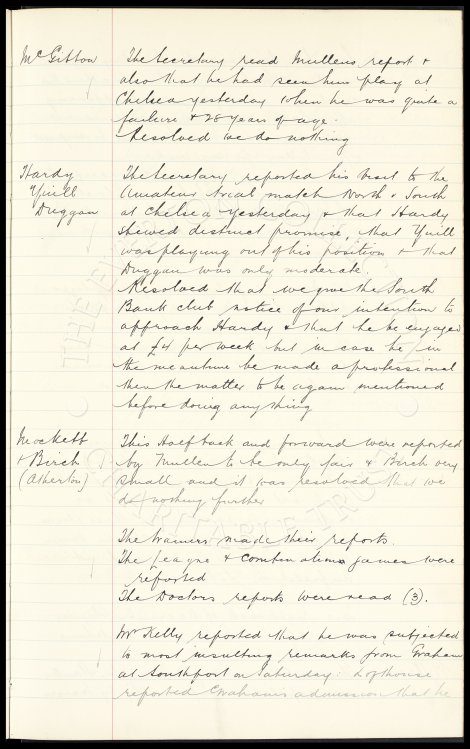 McGibbon
The Secretary read Mullens report &
also that he had seen him play at
Chelsea yesterday when he was quite a
failure & 28 years of age.
Resolved we do nothing
Hardy
Yuill
Duggan
The Secretary reported his visit to the
Amateur trial match North v South
at Chelsea yesterday & that Hardy
shewed distinct promise, that Yuill
was playing out of his position & that
Duggan was only moderate.
Resolved that we give the South
Bank club notice of our intention to
approach Hardy & that he be engaged
at £4 per week but in case he in
the meantime be made a professional
then the matter to be again mentioned
before doing anything
Mockett
& Birch
(Atherton)
This Half back and forward were reported
by Mullen to be only fair & Birch very
small and it was resolved that we
do nothing further
The trainers made their reports.
The League & combination games were
reported
The Doctors reports were read (3).
Mr Kelly reported that he was subjected
to most insulting remarks from Graham
at Southport on Saturday: Lofthouse
reported Grahams admission that he
THE EVERTON
CHARITABLE TRUST